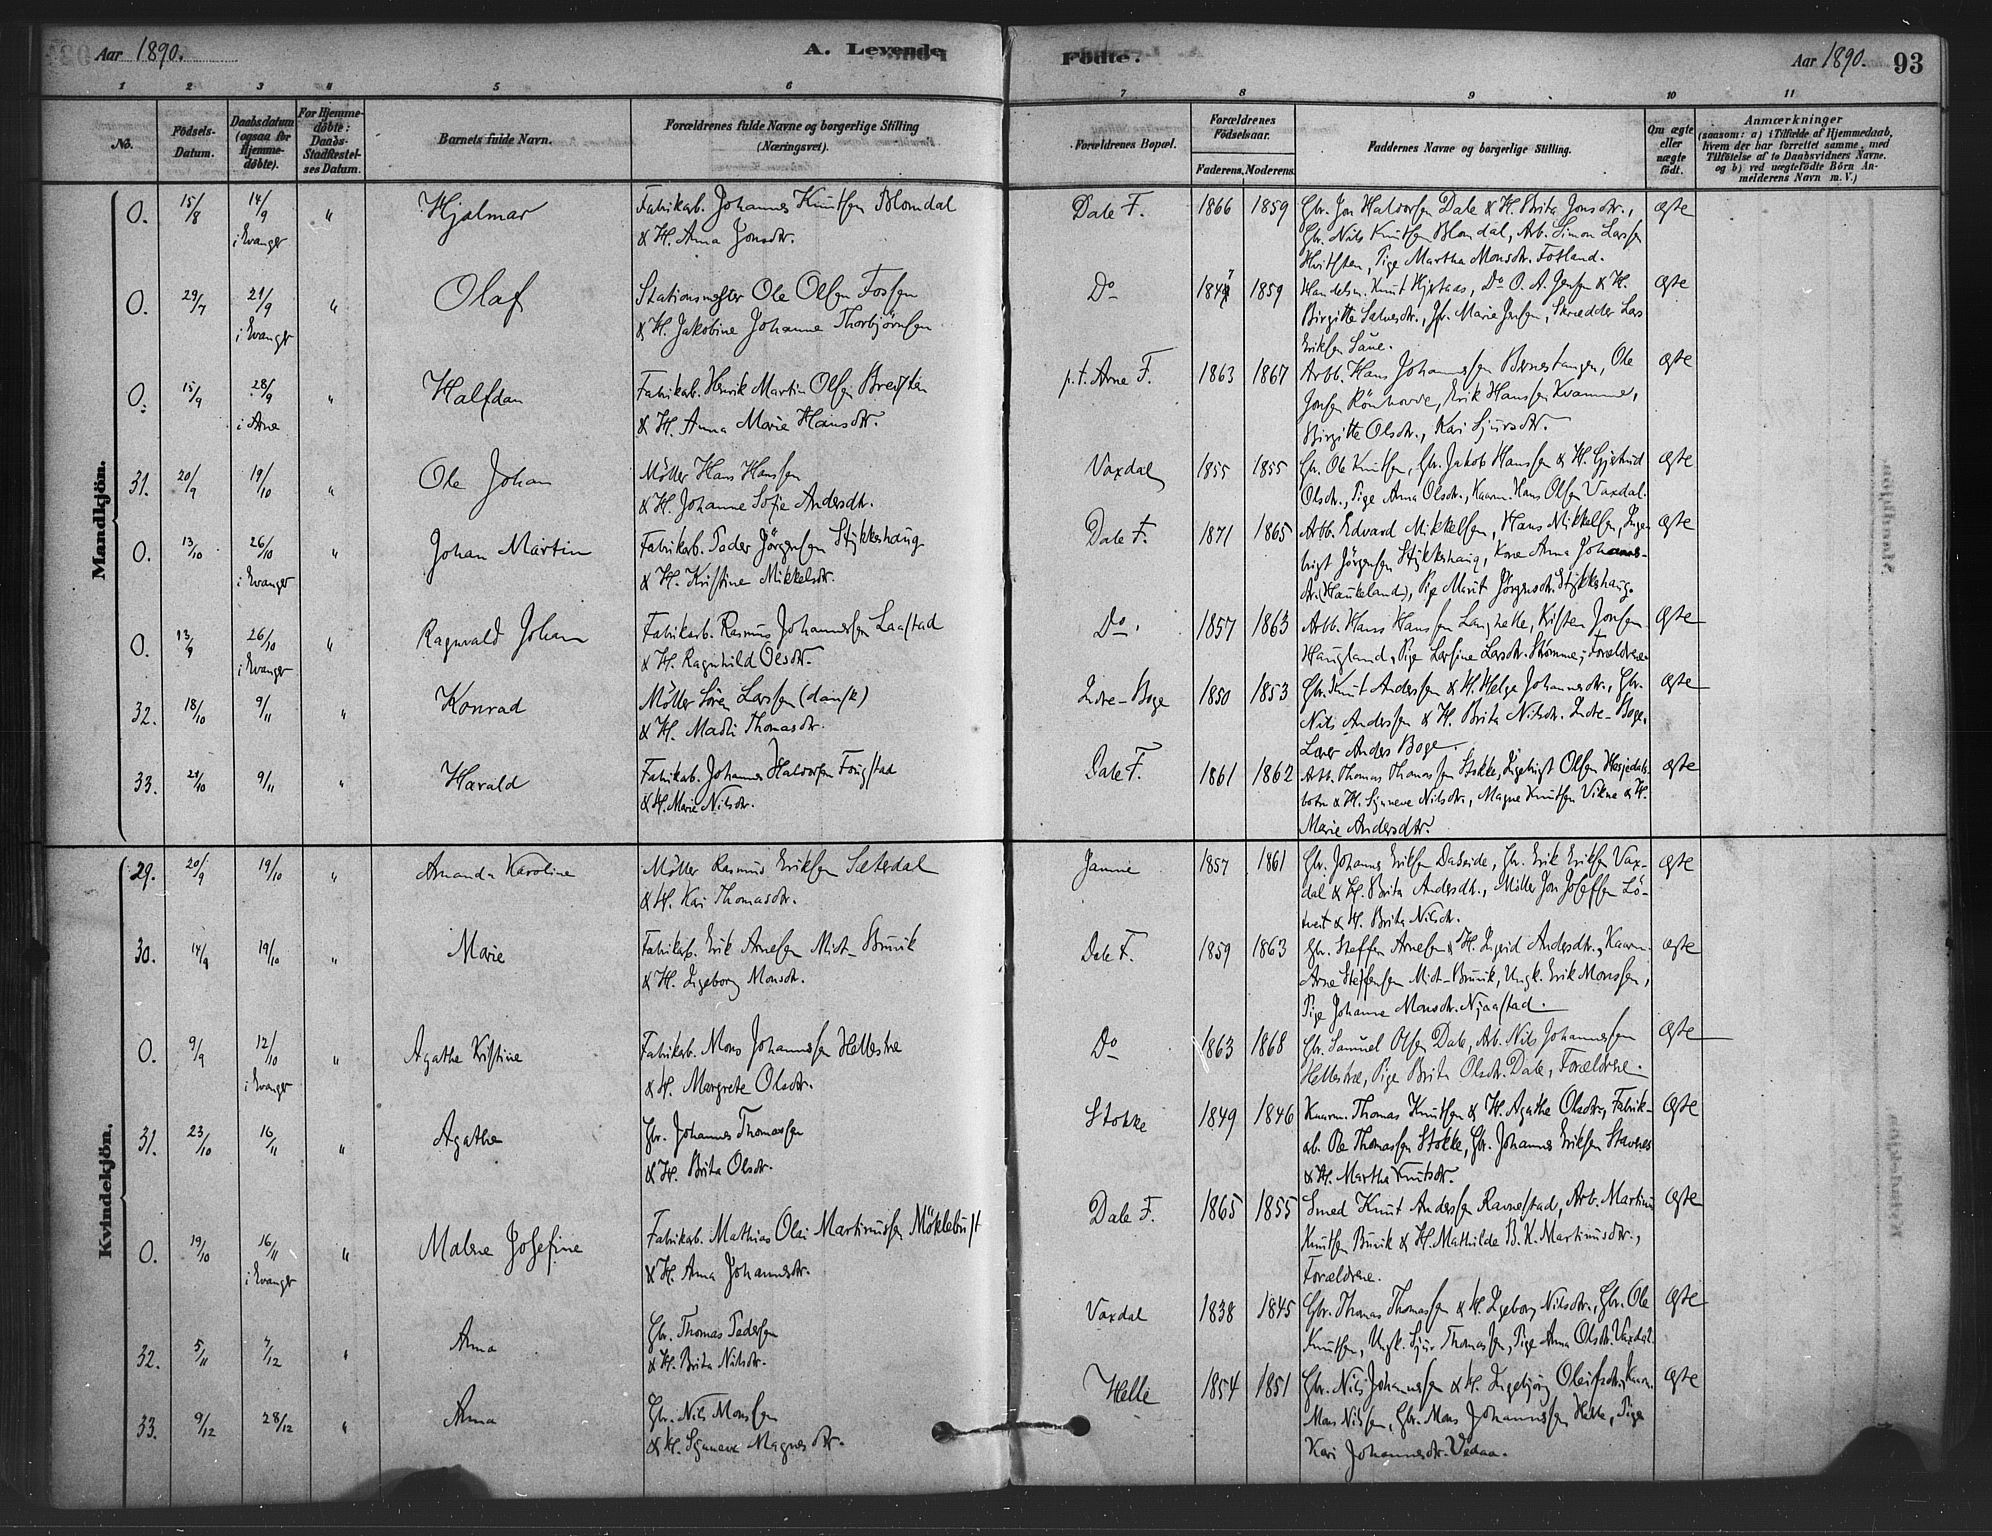 Aar 1890.
A. Levende Födte.
Aar 1890. 93
1 2 3 4 5 6 7 8 9 10 11
No.
Födsels-Datum.
Daabsdatum (ogsaa for Hjemme-döbte).
For Hjemme-döbte: Daabs-Stadfæstel-ses Datum.
Barnets fulde Navn.
Forældrenes fulde Navne og borgerlige Stilling (Næringsvei).
Forældrenes Bopæl.
Forældrenes Födselsaar.
Faderens. Moderens.
Faddernes Navne og borgerlige Stilling.
Om ægte eller uægte födt.
Anmærkninger
(saasom: a) i Tilfælde af Hjemmedaab,
hvem der har forrettet samme, med
Tilföielse af to Daabsvidners Navne.
og b) ved uægtefödte Börn An-
melderens Navn m. V.)
Mandkjön.
0. 15/8 14/9 i Evanger " Hjalmar
Fabrikarb. Johannes Knutsen Blomdal
& H. Anna Jonsdtr.
Dale F. 1866 1859
Gbr. Jon Haldorsen Dale & H. Brita Jonsdtr.,
Gbr. Nils Knutsen Blomdal, Arb. Simon Larsen
Hvitsten, Pige Martha Monsdtr. Fotland.
Ægte
0. 29/7 21/9 i Evanger " Olaf
Stationsmester Ole Olsen Fossen
& H. Jakobine Johanne Thorbjörnsen
Do 1859
Handelsm. Knut Hjertaas, Do O. A. Jensen & H.
Birgitte Salvesdtr., Jfr. Marie Jensen, Skrædder Lars
Eriksen Saue.
Ægte
0. 15/9 28/9 i Arne " Halfdan
Fabrikarb. Henrik Martin Olsen Breisten
& H. Anna Marie Hansdtr.
p.t. Arne F. 1863 1867
Arbb. Hans Johannessen Bernestangen, Ole
Jonsen Rönhovde, Erik Hanssen Kvamme,
Birgitte Olsdtr., Kari Sjursdtr.
Ægte
31. 20/9 19/10 " Ole Johan
Möller Hans Hanssen
& H. Johanne Sofie Andersdtr.
Vaxdal 1855 1855
Gbr. Ole Knutsen, Gbr. Jakob Hanssen & H. Gjertrud
Olsdtr., Pige Anna Olsdtr., Kaarm. Hans Olsen Vaxdal.
Ægte
0. 13/10 26/10 i Evanger " Johan Martin
Fabrikarb. Peder Jörgensen Stykkeshaug
& H. Kristine Mikkelsdtr.
Dale F. 1871 1865
Arbb. Edvard Mikkelsen, Hans Mikkelsen, Inge-
brigt Jörgensen Stykkeshaug, Kone Anna Johannes-
dtr. (Haukeland), Pige Marit Jörgensdtr. Stykkeshaug.
Ægte
0. 13/9 26/10 i Evanger " Ragnvald Johan
Fabrikarb. Rasmus Johannessen Laastad
& H. Ragnhild Olsdtr.
Do. 1857 1863
Arbb. Hans Hanssen Langhelle, Kristen Jonsen
Haugland, Pige Larsine Larsdtr. Strömme; Forældrene
Ægte
32. 18/10 9/11 " Konrad
Möller Sören Larssen (dansk)
& H. Madli Thomasdtr.
Indre-Boge 1850 1853
Gbr. Knut Anderssen & H. Helga Johannesdtr., Gbr.
Nils Anderssen & H. Brita Nilsdtr. Indre-Boge,
Lærer Anders Boge
Ægte
33. 21/10 9/11 " Harald
Fabrikarb. Johannes Haldorsen Fougstad
& H. Marie Nilsdtr.
Dale F. 1861 1862
Arbb. Thomas Thomassen Stokke, Ingebrigt Olsen Hesjedals-
botn & H. Synneve Nilsdtr., Magne Knutsen Vikne & H.
Marie Andersdtr.
Ægte
Kvindekjön.
29. 20/9 19/10 " Amanda Karoline
Möller Rasmus Eriksen Sæterdal
& H. Kari Thomasdtr.
Jamne 1857 1861
Gbr. Johannes Eriksen Daleeide, Gbr. Erik Eriksen Vax-
dal & H. Brita Andersdtr., Möller Jon Josefsen Lö-
tveit & H. Brita Nilsdtr.
Ægte
30. 14/9 19/10 " Marie
Fabrikarb. Erik Arnesen Midt-Bruvik
& H. Ingeborg Monsdtr.
Dale F. 1859 1863
Gbr. Steffen Arnesen & H. Ingerid Andersdtr., Kaarm.
Arne Steffensen Midt-Bruvik, Ungk. Erik Monssen,
Pige Johanne Monsdtr. Njaastad.
Ægte
0. 9/9 12/10 i Evanger " Agathe Kristine
Fabrikarb. Mons Johannessen Hellestræ
& H. Margrete Olsdtr.
Do 1863 1868
Gbr. Samuel Olsen Dale, Arb. Nils Johannessen
Hellestræ, Pige Brita Olsdtr. Dale, Forældrene.
Ægte
31. 23/10 16/11 " Agathe
Gbr. Johannes Thomassen
& H. Brita Olsdtr.
Stokke 1849 1846
Kaarm. Thomas Knutsen & H. Agathe Olsdtr., Fabrik-
arb. Ole Thomassen Stokke, Gbr. Johannes Eriksen Stavenes
& H. Martha Knutsdtr.
Ægte
0. 19/10 16/11 i Evanger " Malene Josefine
Fabrikarb. Mathias Olai Martinussen Möklebust
& H. Anna Johannesdtr.
Dale F. 1865 1855
Smed Knut Anderssen Ravnestad, Arb. Martinus
Knutsen Bruvik & H. Mathilde B. K. Martinusdtr.,
Forældrene.
Ægte
32. 5/11 7/12 " Anna
Gbr. Thomas Pedersen
& H. Brita Nilsdtr.
Vaxdal 1838 1845
Gbr. Thomas Thomassen & H. Ingeborg Nilsdtr., Gbr. Ole
Knutsen, Ungk. Sjur Thomassen, Pige Anna Olsdtr. Vaxdal.
Ægte
33. 9/12 28/12 " Anna
Gbr. Nils Monssen
& H. Synneve Magnesdtr.
Helle 1854 1851
Gbr. Nils Johannessen & H. Ingebjörg Kaarm.
Mons Nilssen, Gbr. Mons Johannessen Helle, Pige
Kari Johannesdtr. Vedaa.
Ægte